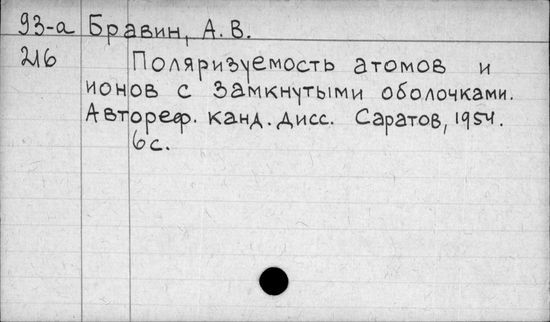 93-а Бравин, А. В.
216 Поляризуемость атомов и
ионов с замкнутыми оболочками.
Автореф. канд. дисс. Саратов, 1954.
6 с.